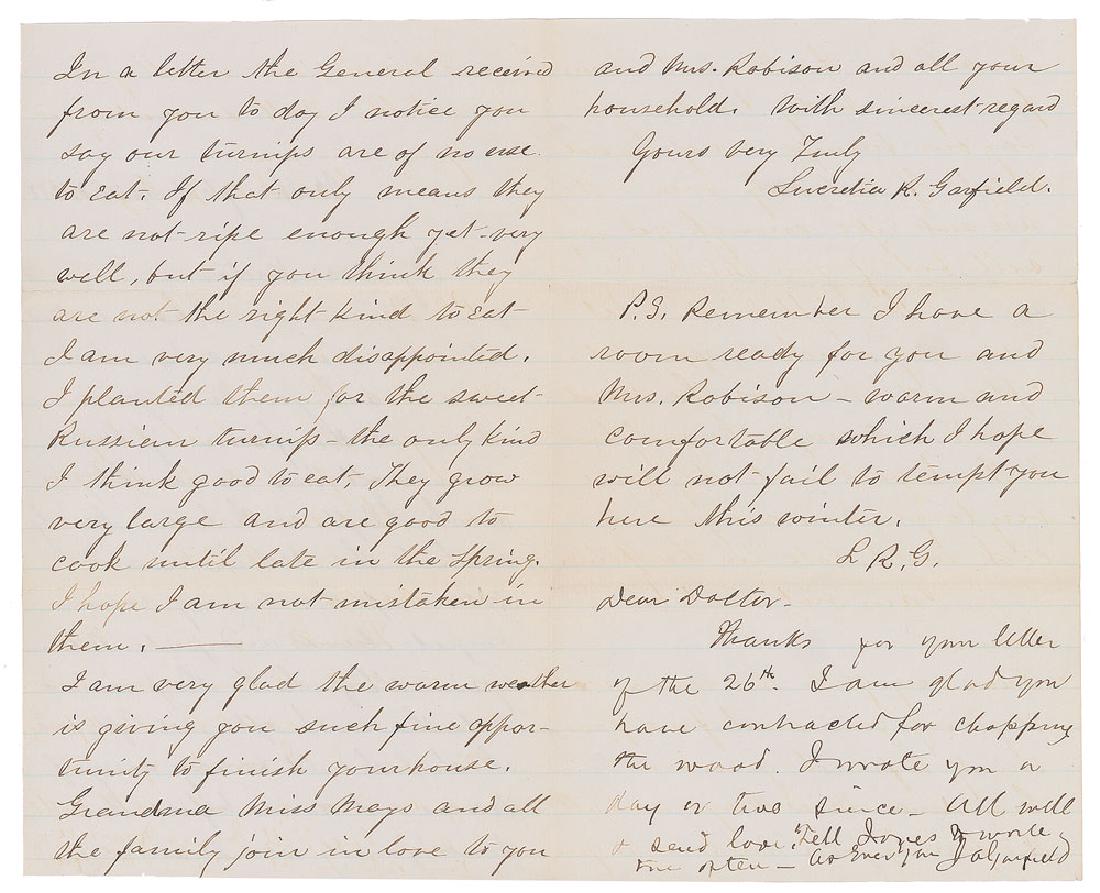 In a letter the General received
from you to day I notice you
say our turnips are of no use
to eat. If that only means they
are not ripe enough yet very
well, but if you think they
are not the right kind to eat
I am very much disappointed.
I planted them for the sweet
Russian turnip – the only kind
I think good to eat. They grow
very large and are good to
cook until late in the Spring.
I hope I am not mistaken in
them. —
I am very glad the warm weather
is giving you such fine oppor-
tunity to finish your house.
Grandma Miss Mays and all
the family join in love to you
and Mrs. Robison and all your
household. With sincerest regard
Yours very Truly
Lucretia R. Garfield.
P.S. Remember I have a
room ready for you and
Mrs. Robison – warm and
comfortable which I hope
will not fail to tempt you
here this winter.
L R. G.
Dear Doctor –
Thanks for your letter
of the 26th. I am glad you
have contracted for chopping
the wood. I wrote you a
day or two since – All well
& send love. Tell Jones to write
me often – As Ever Your J A Garfield